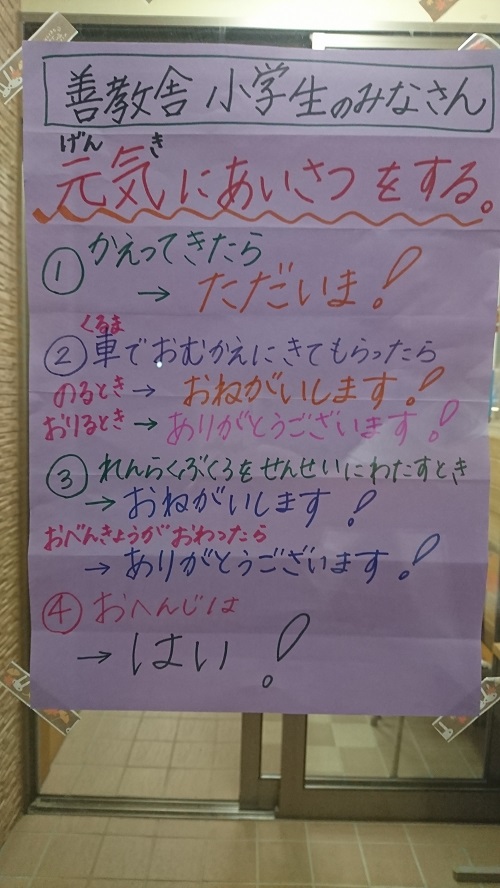 善教舎 小学生のみなさん
げん き
元気にあいさつをする。
① かえってきたら
→ ただいま!
くるま
② 車でおむかえにきてもらったら
のるとき → おねがいします!
おりるとき → ありがとうございます!
③ れんらくぶくろをせんせいにわたすとき
→ おねがいします!
おべんきょうがおわったら
→ ありがとうございます!
④ おへんじは
→ はい!